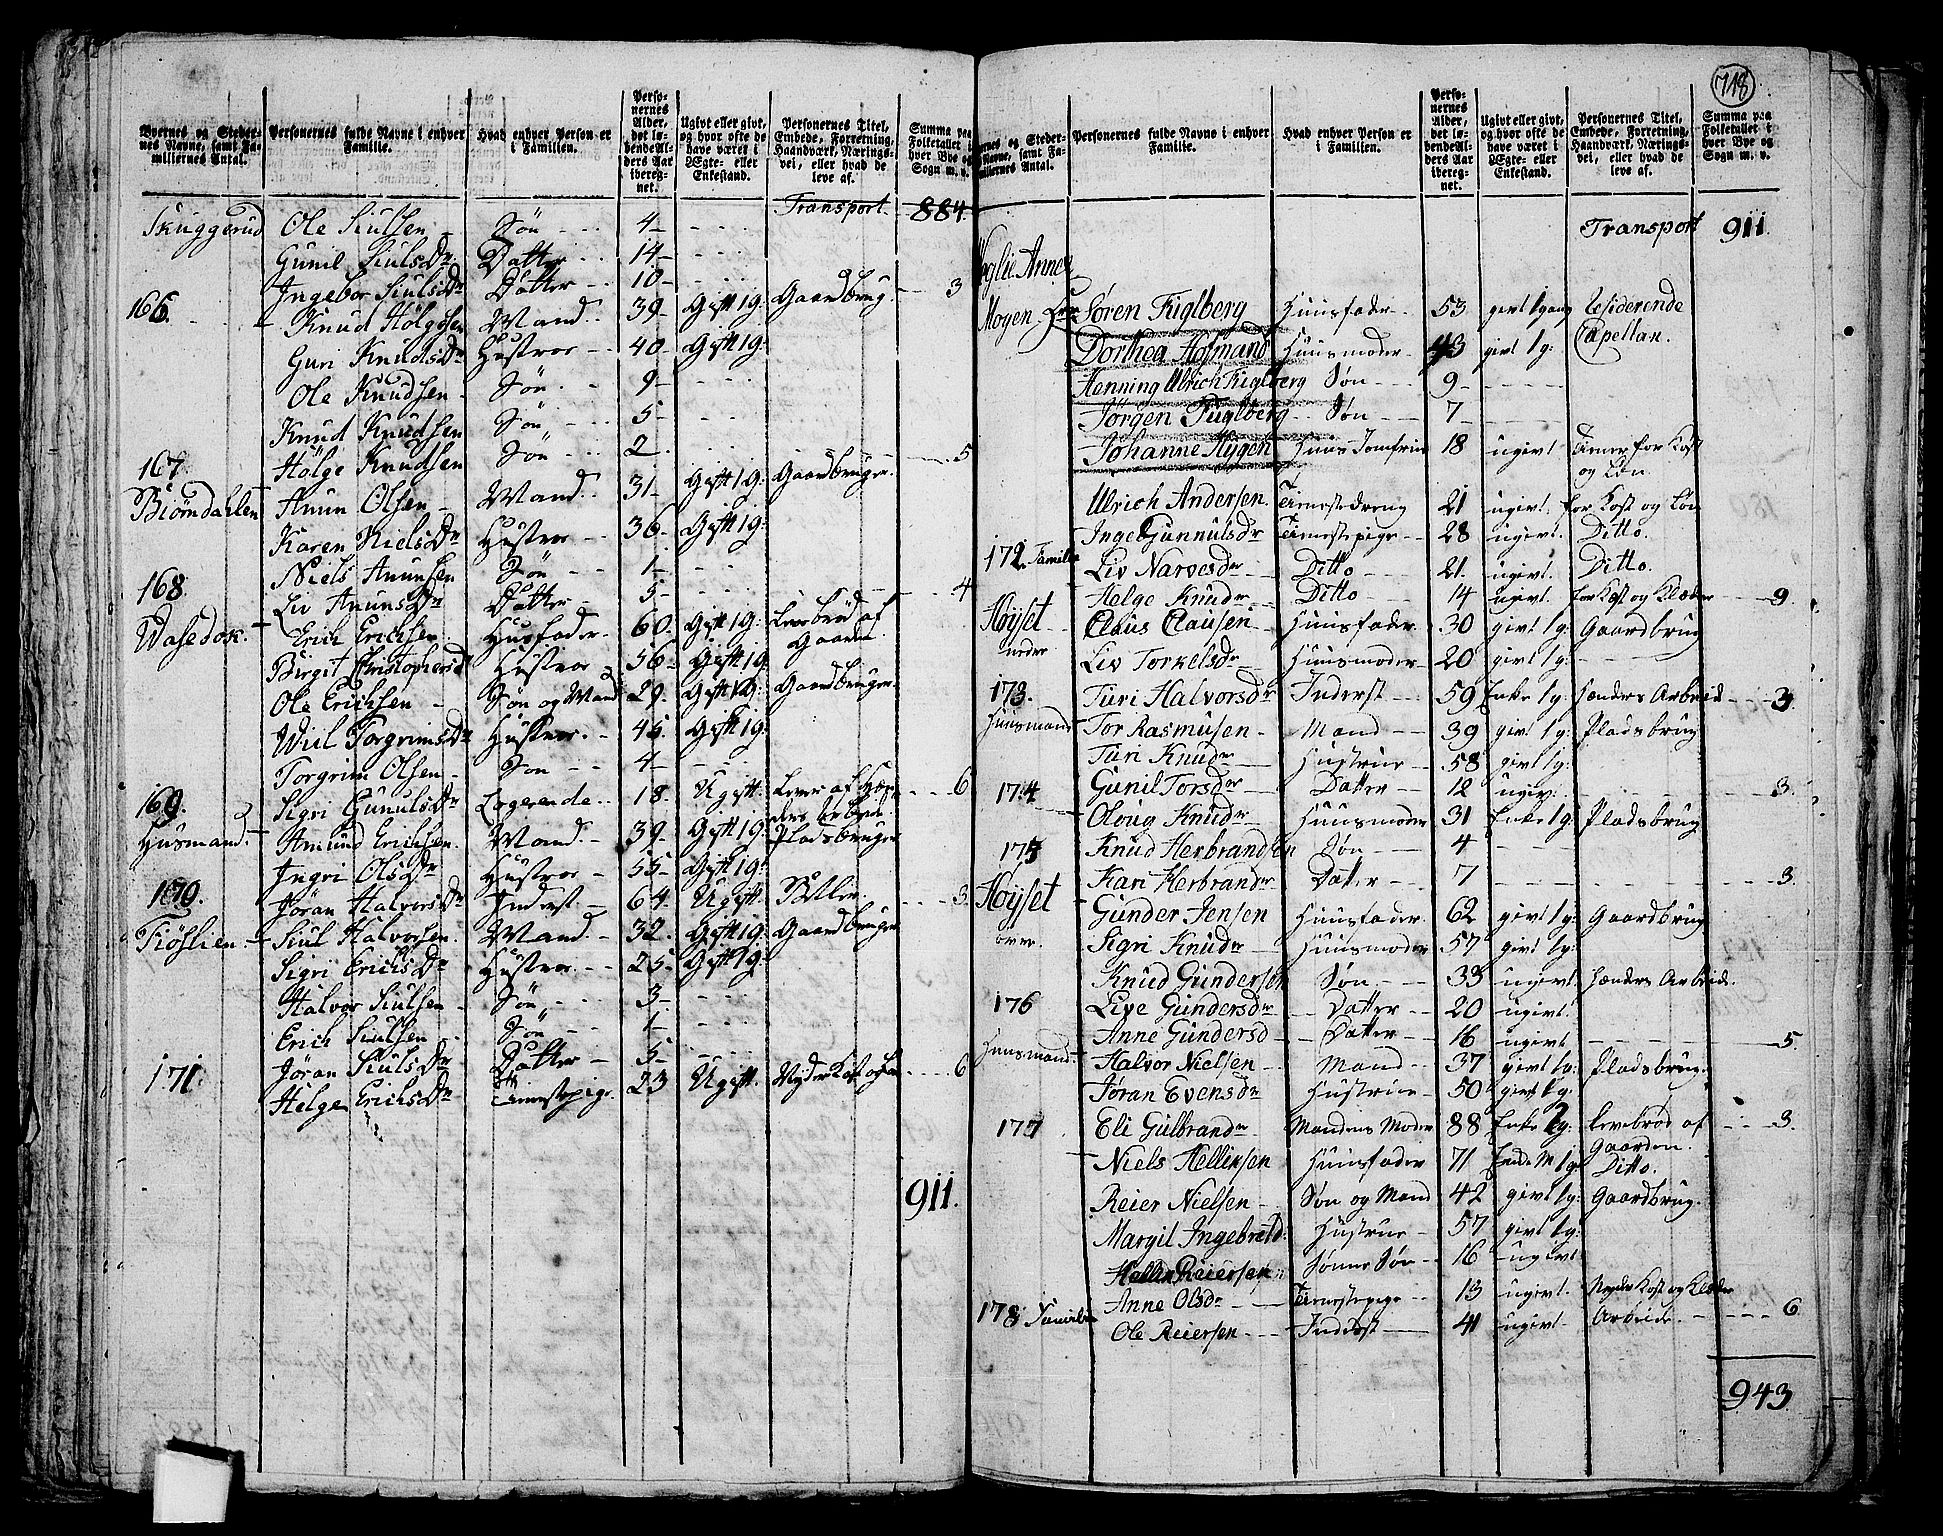 718
Byernes og Stedernes Navne, samt Familliernes Antal. Personernes fulde Navne i enhver Familie. Hvad enhver Person er i Familien. Personernes Alder, det løbende Alders Aar iberegnet. Ugivt eller givt, og hvor ofte de have været i Ægte- eller Enkestand. Personernes Titel, Embede, Forretning, Haandværk, Næringsvei, eller hvad de leve af. Summa paa Folketallet i hver Bye og Sogn m. v.
Transport 884.
Skuggerud Ole Siulsen Søn 4
Gunil Siulsdr Datter 14
Ingebor Siulsdr Datter 10 3
166. Knud Holgesen Mand 39 Gift 1 g: Gaardbrug
Guri Knudsdr Hustroe 40 Gift 1 g:
Ole Knudsen Søn 9
Knud Knudsen Søn 5
Holge Knudsen Søn 2 5
167. Biørndahlen Anun Olsen Mand 31 Gift 1 g: Gaardbruger
Karen Nielsdr Hustroe 36 Gift 1 g:
Niels Anunsen Søn 1
Liv Anunsdr Datter 5 4
168. Erich Erichsen Husfader 60 Gift 1 g: Levebrød af Gaarden
Birgit Christophersdr Hustroe 56 Gift 1 g:
Ole Erichsen Søn og Mand 29 Gift 1 g: Gaardbruger
Wiil Torgrimsdr Hustroe 45 Gift 1 g:
Torgrim Olsen Søn 4
Sigri Gunulsdr Logerende 18 Ugift Lever af Hænders Arbeid 6
169. Husmand Amund Erichsen Mand 39 Gift 1 g: Pladsbruger
Ingri Olsdr Hustroe 55 Gift 1 g:
Jøran Halvorsdr Inderst 64 Ugift 3
170. Siul Halvorsen Mand 32 Gift 1 g: Gaardbruger
Sigri Erichsdr Hustroe 25 Gift 1 g:
Halvor Siulsen Søn 3
Erich Siulsen Søn 1
Jøran Siulsdr Datter 5
171. Helge Erichsdr Tienestepige 23 Ugift Nyder Kost og Løn 6
911.
Byernes og Stedernes Navne, samt Familliernes Antal. Personernes fulde Navne i enhver Familie. Hvad enhver Person er i Familien. Personernes Alder, det løbende Alders Aar iberegnet. Ugivt eller givt, og hvor ofte de have været i Ægte- eller Enkestand. Personernes Titel, Embede, Forretning, Haandværk, Næringsvei, eller hvad de leve af. Summa paa Folketallet i hver Bye og Sogn m. v.
Transport 911.
Moglie Annex
Mogen Søren Fuglberg Huusfader 53 givt 1 gang Residerende Capellan.
Dorthea Hofmand Huusmoder 43 givt 1 g:
Henning Ulrich Fuglberg Søn 9
Jørgen Fuglberg Søn 7
Johanne Hygen Huus Jomfrue 18 ugivt tiener for Kost og Løn
Ulrich Andersen Tienestedreng 21 ugivt for Kost og Løn
Inge Gunnulsdr Tienestepige 28 ugivt. Ditto.
172. Familie Liv Narvesdr Ditto 21 ugivt. Ditto.
Helge Knudr Ditto 14 ugivt. for Kost og Klæder 9.
Høyset nedre Claus Clausen Huusfader 30 givt 1 g: Gaardbrug
Liv Torkelsdr Huusmoder 20 givt 1 g:
173. Turi Halvorsdr Inderst 59 Enke 1 g: Hænders Arbeid 3.
Huusmand Tor Rasmusen Mand 39 givt 1 g: Pladsbrug
Turi Knudr Hustrue 58 givt 1 g:
174 Gunil Torsdr Datter 12 ugivt. 3.
Oloug Knudr Huusmoder 31 Enke 1 g: Pladsbrug
175 Knud Herbrandsen Søn 4
Kari Herbrandr Datter 7 3.
Høyset øvre. Gunder Jensen Huusfader 62 givt 1 g: Gaardbrug
Sigri Knudr Huusmoder 57 givt 1 g:
Knud Gundersen Søn 33 ugivt. Hænders Arbeid.
176 Live Gundersdr Datter 20 ugivt.
Anne Gundersd Datter 16 ugivt 5.
Huusmand Halvor Nielsen Mand 37 givt 1 g: Pladsbrug.
Jøran Evensdr Hustrue 50 givt 1 g:
177 Eli Gulbrandr Mandens Moder 88 Enke 2 g: Levebrød af Gaarden. 3.
Niels Hellinsen Huusfader 71 Enkem 1 g Ditto.
Reier Nielsen Søn og Mand 42 givt 1 g: Gaardbrug.
Margit Ingebretd: Hustrue 57 givt 1 g:
Hellin Reiersen Sønne Søn 16 ugivt
Anne Olsdr Tienestepige 13 ugivt. Nyder Kost og Klæder
178 Familie Ole Reiersen Inderst 41 ugivt Arbeide. 6
943